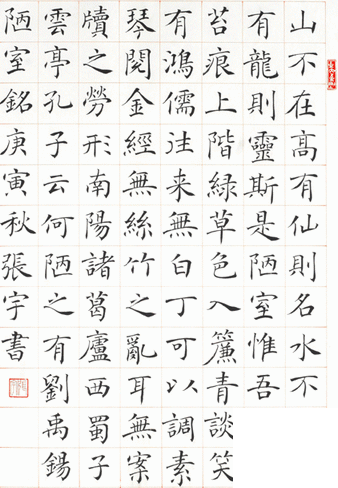 山不在高有仙則名水不
有龍則靈斯是陋室惟吾
苔痕上階緑草色入簾青談笑
有鴻儒往来無白丁可以調素
琴閱金經無絲竹之亂耳無案
牘之勞形南陽諸葛廬西蜀子
雲亭孔子云何陋之有劉禹錫
陋室銘庚寅秋張宇書